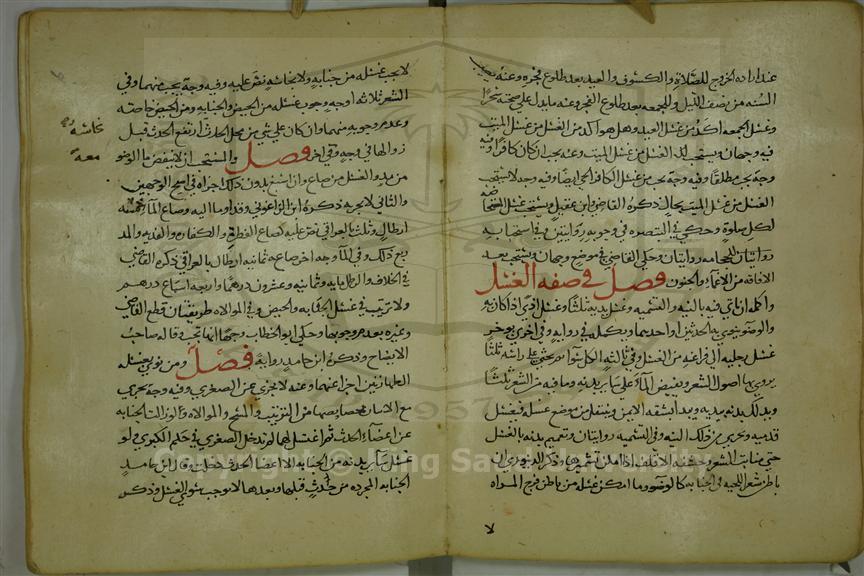 عند اراده الخروج للصلاة والكسوف والعيد بعد طلوع فجره وعنه يصيب
السنه من نصف الليل وللجمعه بعد طلوع الفجر وعنه ما يدل على صحته سحرا
وغسل الجمعه آكد من غسل العيد وهل هو آكد من الغسل من غسل الميت
فيه وجهان ويستحب له الغسل من غسل الميت وعنه يجب ان كان كافرا وفيه
وجه يجب مطلقا وفيه وجه يجب من غسل الكافر الحي ايضا وفيه وجه لا يستحب
الغسل من غسل الميت بحال ذكره القاضي وابن عقيل ويستحب غسل المستحاضه
لكل صلوة وحكي في التبصره في وجوبه روايتين وفي استحبابه
روايتان للحجامه روايتان وحكي القاضي في موضع وجهان ويستحب بعد
الافاقه من الاغماء والجنون فصل في صفه الغسل
واكمله ان ياتي فيه بالنيه والتسميه وغسل يديه ثلثا وغسل الاذى اذا كان به
والوضو ينوي به الحدثين او احدهما ويكمله في روايه وفي اخرى يوخر
غسل رجليه الى فراغه من الغسل وفي ثالثه الكل سوا ثم يحثي على راسه ثلثا
يروي بها اصول الشعر ويفيض الماء على ساير بدنه وما فيه من الشعر ثلثا
ويدلك بدنه بيديه ويبدأ بشقه الايمن وينتقل من موضع غسله فيغسل
قدميه ويجزي من ذلك النيه وفي التسميه روايتان وتعميم بدنه بالغسل
حتى منابت الشعر وحشفه الاقلف اذا امكن تشميرها وذكر الدينوري ان
باطن شعر اللحيه في الجنابه كالوضوء وما امكن غسله من باطن فرج المراه
لا
لا يجب غسله من جنابه ولا نجاسه نص عليه وفيه وجه يجب منهما وفي
الشعر ثلاثه اوجه وجوب غسله من الحيض والجنابه ومن الحيض خاصه
وعدم وجوبه منهما وان كان على شي من محل الحدث ارتفع الحدث قبل
زوالها في وجه وفي اخر فصل والمستحب ان لا ينقص ما الوضو
من مد والغسل من صاع وان اسبغ بدون ذلك اجزاه في اصح الوجهين
والثاني لا يجزيه ذكره ابن الزاغوني وقد اوما اليه وصاع الماء خمسه
ارطال وثلث بالعراقي نص عليه كصاع الفطره والكفاره والفديه والمد
ربع ذلك وفي الماء وجه اخر صاعه ثمانيه ارطال بالعراقي ذكره القاضي
في الخلاف والرطل مايه وثمانيه وعشرون درهما واربعه اسباع درهم
ولا ترتيب في غسل الجنابه والحيض وفي الموالاه طريقتان قطع القاضي
وغيره بعدم وجوبها وحكي ابو الخطاب وجها انها تجب وقاله صاحب
الايضاح وذكره ابن حامد روايه فصل ومن نوى بغسله
الطهارتين اجزا عنهما وعنه لا يجزي عن الصغرى وفيه وجه يجزي
مع الاتيان بخصايصها من الترتيب والمسح والموالاه ولو زالت الجنابه
عن اعضاء الحدث ثم اغتسل لهما لم تدخل الصغرى في حكم الكبرى ولو
غسل ساير بدنه من الجنابه الا اعضا الحدث دخلت وقال ابن حامد
الجنابه المجرده من حدث قبلها وبعدها لا توجب سوى الغسل وذكره
نجاسة
معه
Copyright © King Saud University
1957